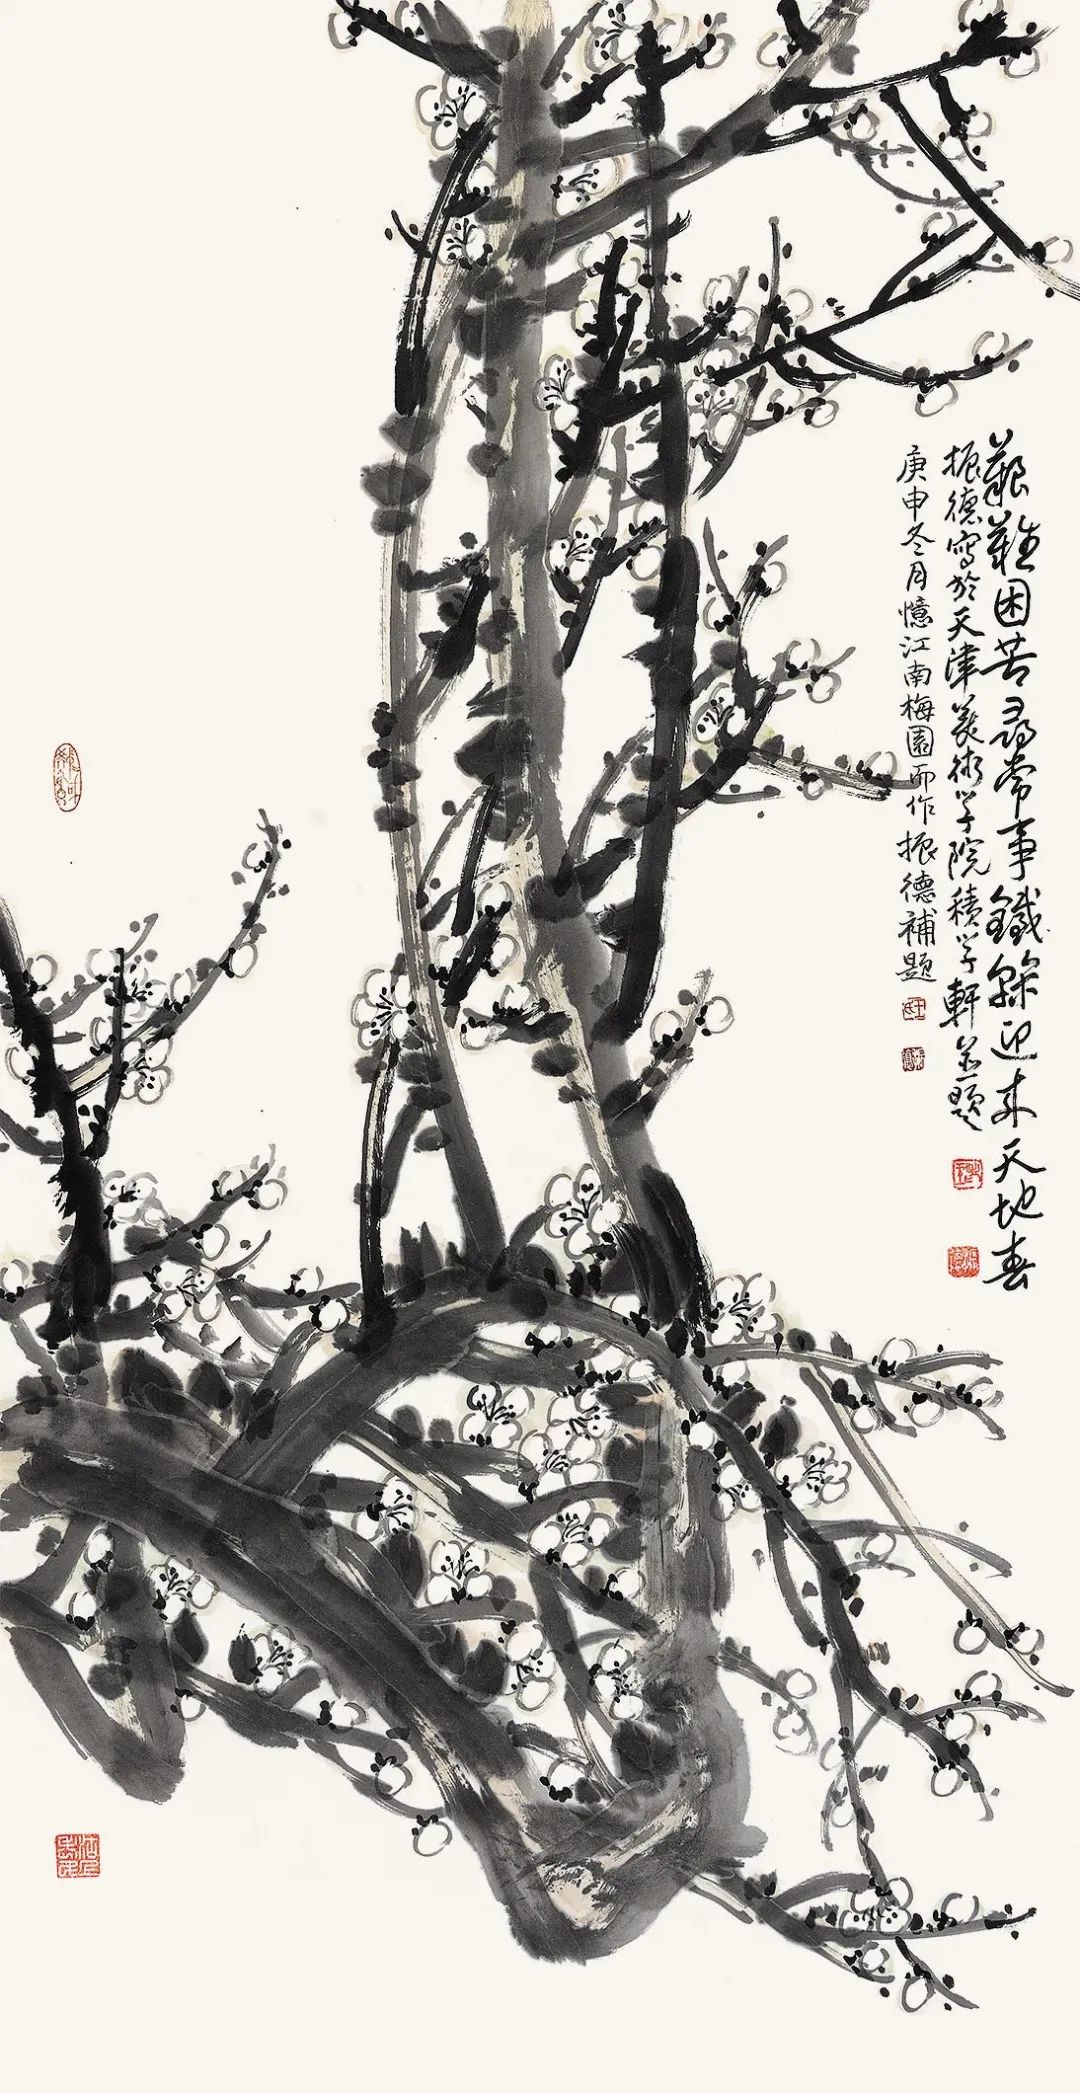 艱難困苦尋常事鐵幹迎來天地春
振德寫於天津美術學院積學軒并題
庚申冬月憶江南梅園而作振德補題